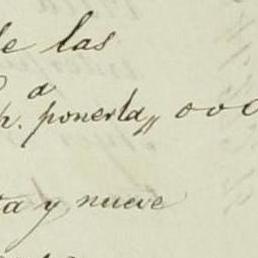 de las
p.ª ponerla,, o o o
ta y nueve